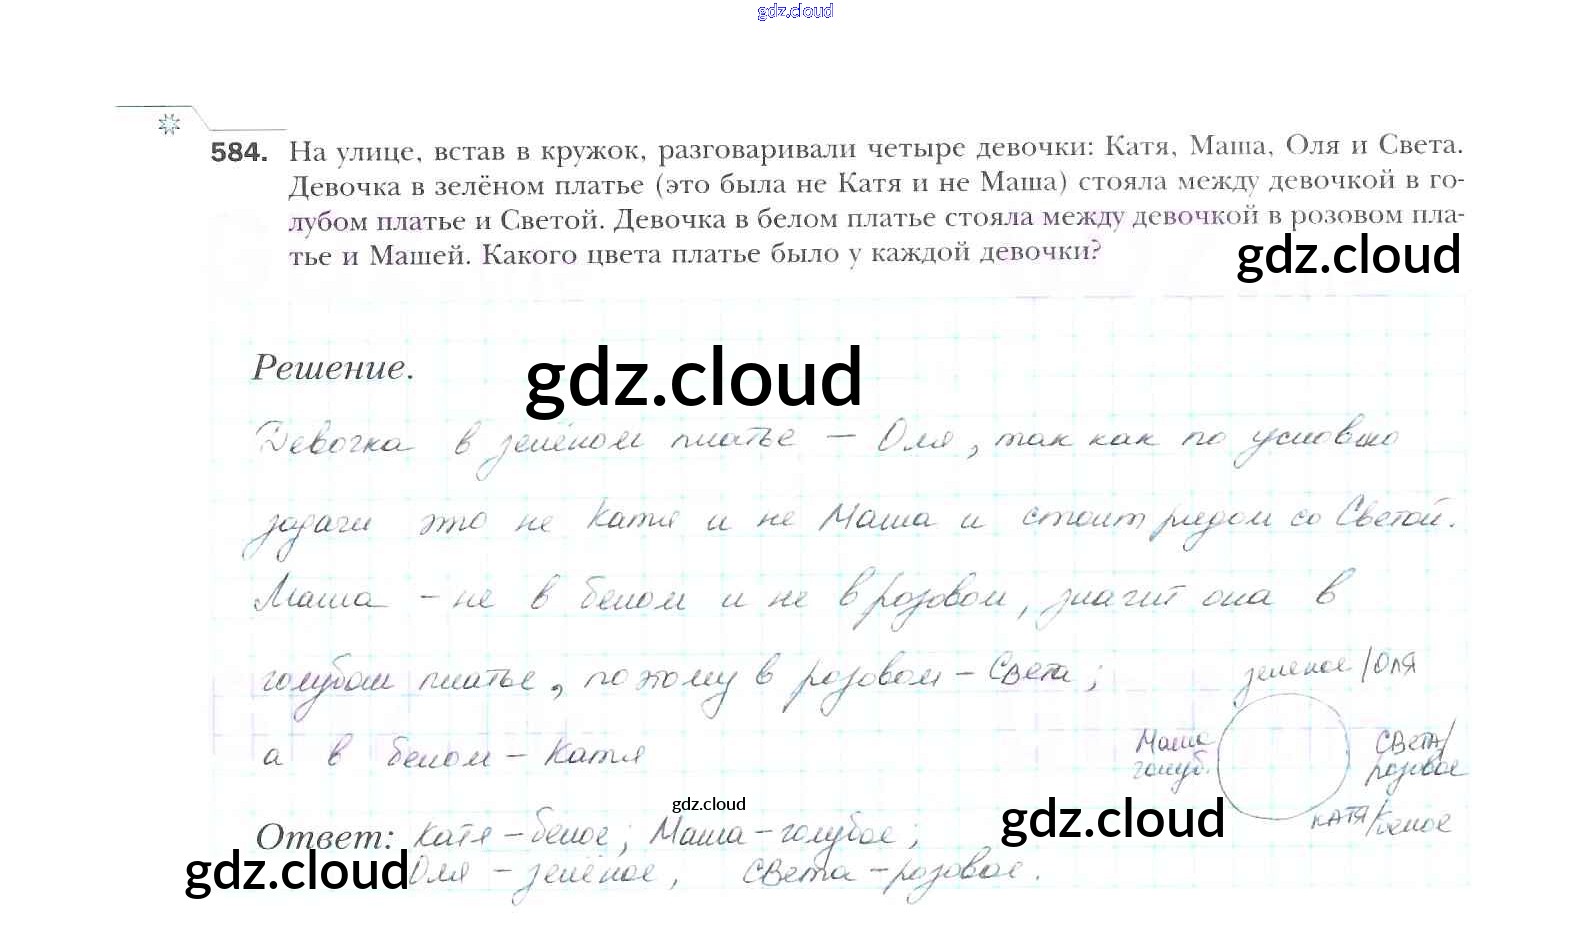 gdz.cloud
584. На улице, встав в кружок, разговаривали четыре девочки: Катя, Маша, Оля и Света.
Девочка в зелёном платье (это была не Катя и не Маша) стояла между девочкой в го-
лубом платье и Светой. Девочка в белом платье стояла между девочкой в розовом пла-
тье и Машей. Какого цвета платье было у каждой девочки?
gdz.cloud
Решение.
gdz.cloud
Девочка в зелёном платье – Оля, так как по условию
задачи это не Катя и не Маша и стоит рядом со Светой.
Маша – не в белом и не в розовом, значит она в
голубом платье, поэтому в розовом – Света;
зеленое/Оля
а в белом – Катя
Маша
голуб.
СВЕТА/
розовое
КАТЯ/белое
gdz.cloud
gdz.cloud
Ответ: Катя – белое; Маша – голубое;
gdz.cloud
Оля – зелёное, Света – розовое.